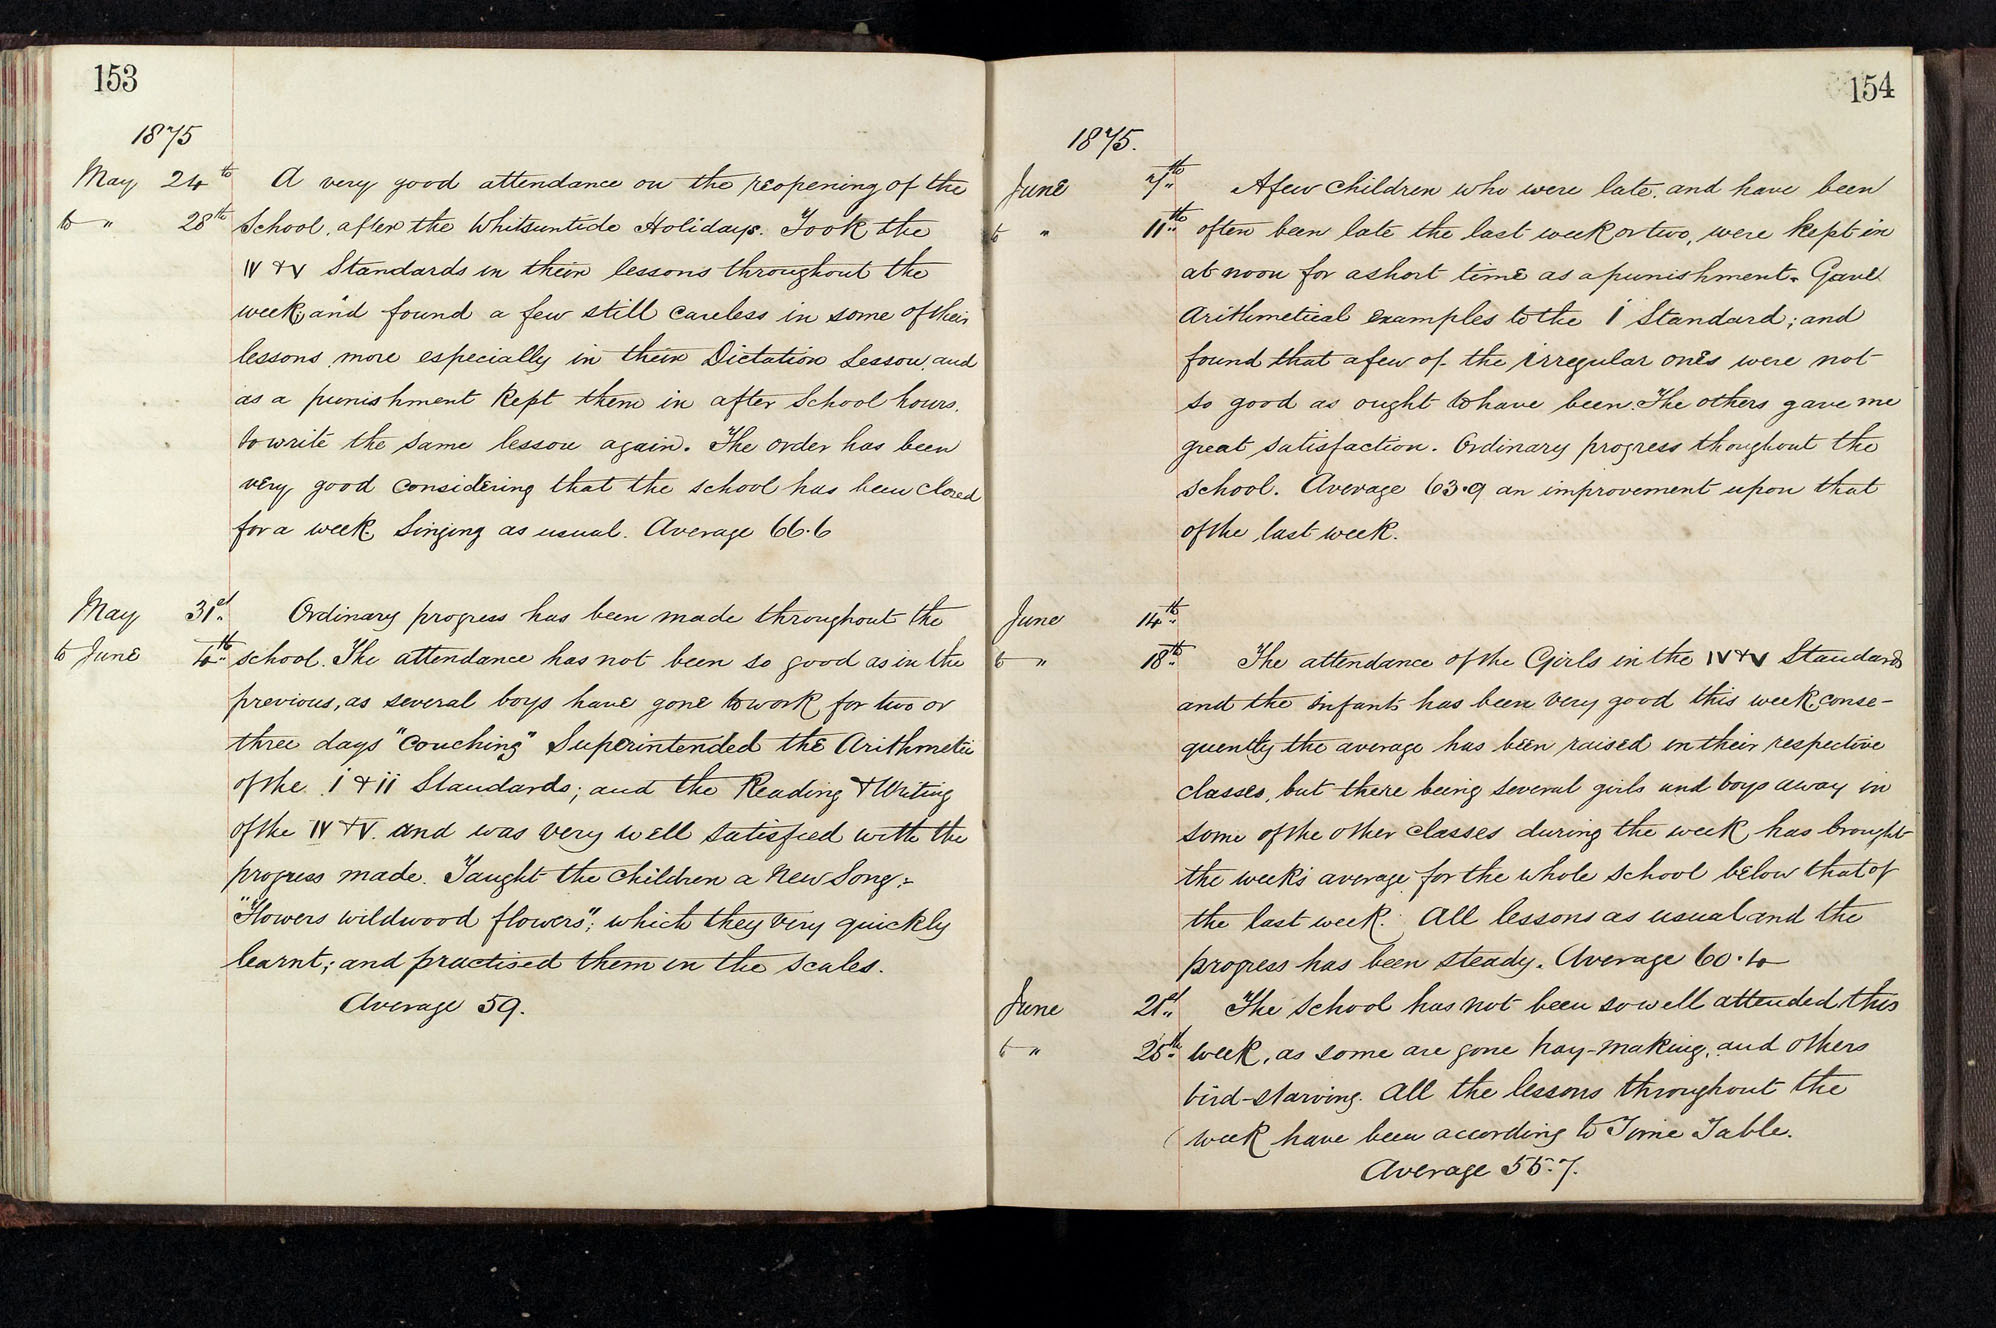 153
1875
May 24th A very good attendance on the reopening of the
to " 28th School, after the Whitsuntide Holidays. Took the
IV & V Standards in their lessons throughout the
week; and found a few still careless in some of their
lessons more especially in their Dictation Lesson, and
as a punishment kept them in after School hours,
to write the same lesson again. The order has been
very good considering that the school has been closed
for a week. Singing as usual. Average 66.6
May 31st Ordinary progress has been made throughout the
to June 4th school. The attendance has not been so good as in the
previous, as several boys have gone to work for two or
three days "couching" Superintended the Arithmetic
of the I & II Standards; and the Reading & Writing
of the IV & V. and was very well satisfied with the
progress made. Taught the children a New Song:-
"Flowers wildwood flowers"; which they very quickly
learnt; and practised them in the scales.
Average 59.
154
1875.
June 7th A few children who were late, and have been
to " 11th often been late the last week or two, were kept in
at noon for a short time as a punishment. Gave
Arithmetical examples to the I Standard; and
found that a few of the irregular ones were not
so good as ought to have been. The others gave me
great satisfaction. Ordinary progress thoughout the
school. Average 63.9 an improvement upon that
of the last week.
June 14th
to " 18th The attendance of the Girls in the IV & V Standards
and the infants has been very good this week, conse-
quently the average has been raised in their respective
classes, but there being several girls and boys away in
some of the other classes during the week has brought
the week's average for the whole school below that of
the last week. All lessons as usual and the
progress has been steady. Average 60.4
June 21st The school has not been so well attended this
to " 25th week, as some are gone hay-making, and others
bird-starving. All the lessons throughout the
week have been according to Time Table.
Average 55.7.